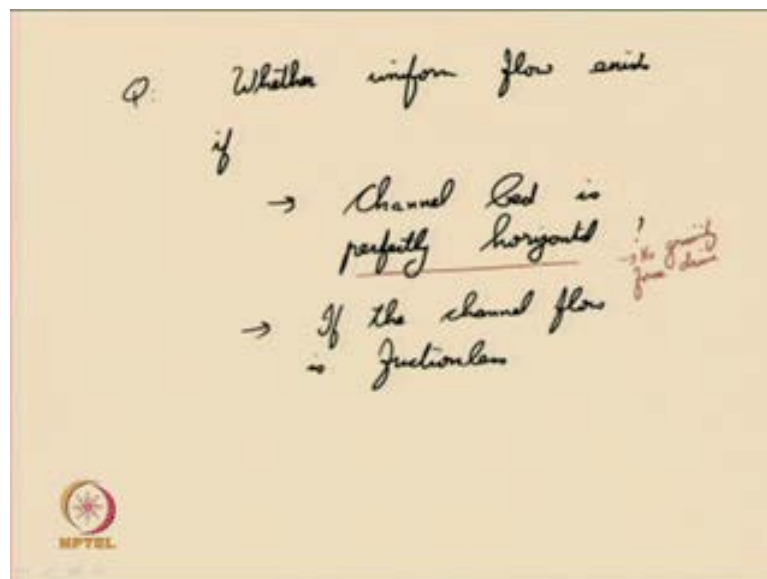 Q: Whether uniform flow exists
if
→ Channel bed is
perfectly horizontal ?
→ No gravity
force
→ If the channel flow
is frictionless
NPTEL